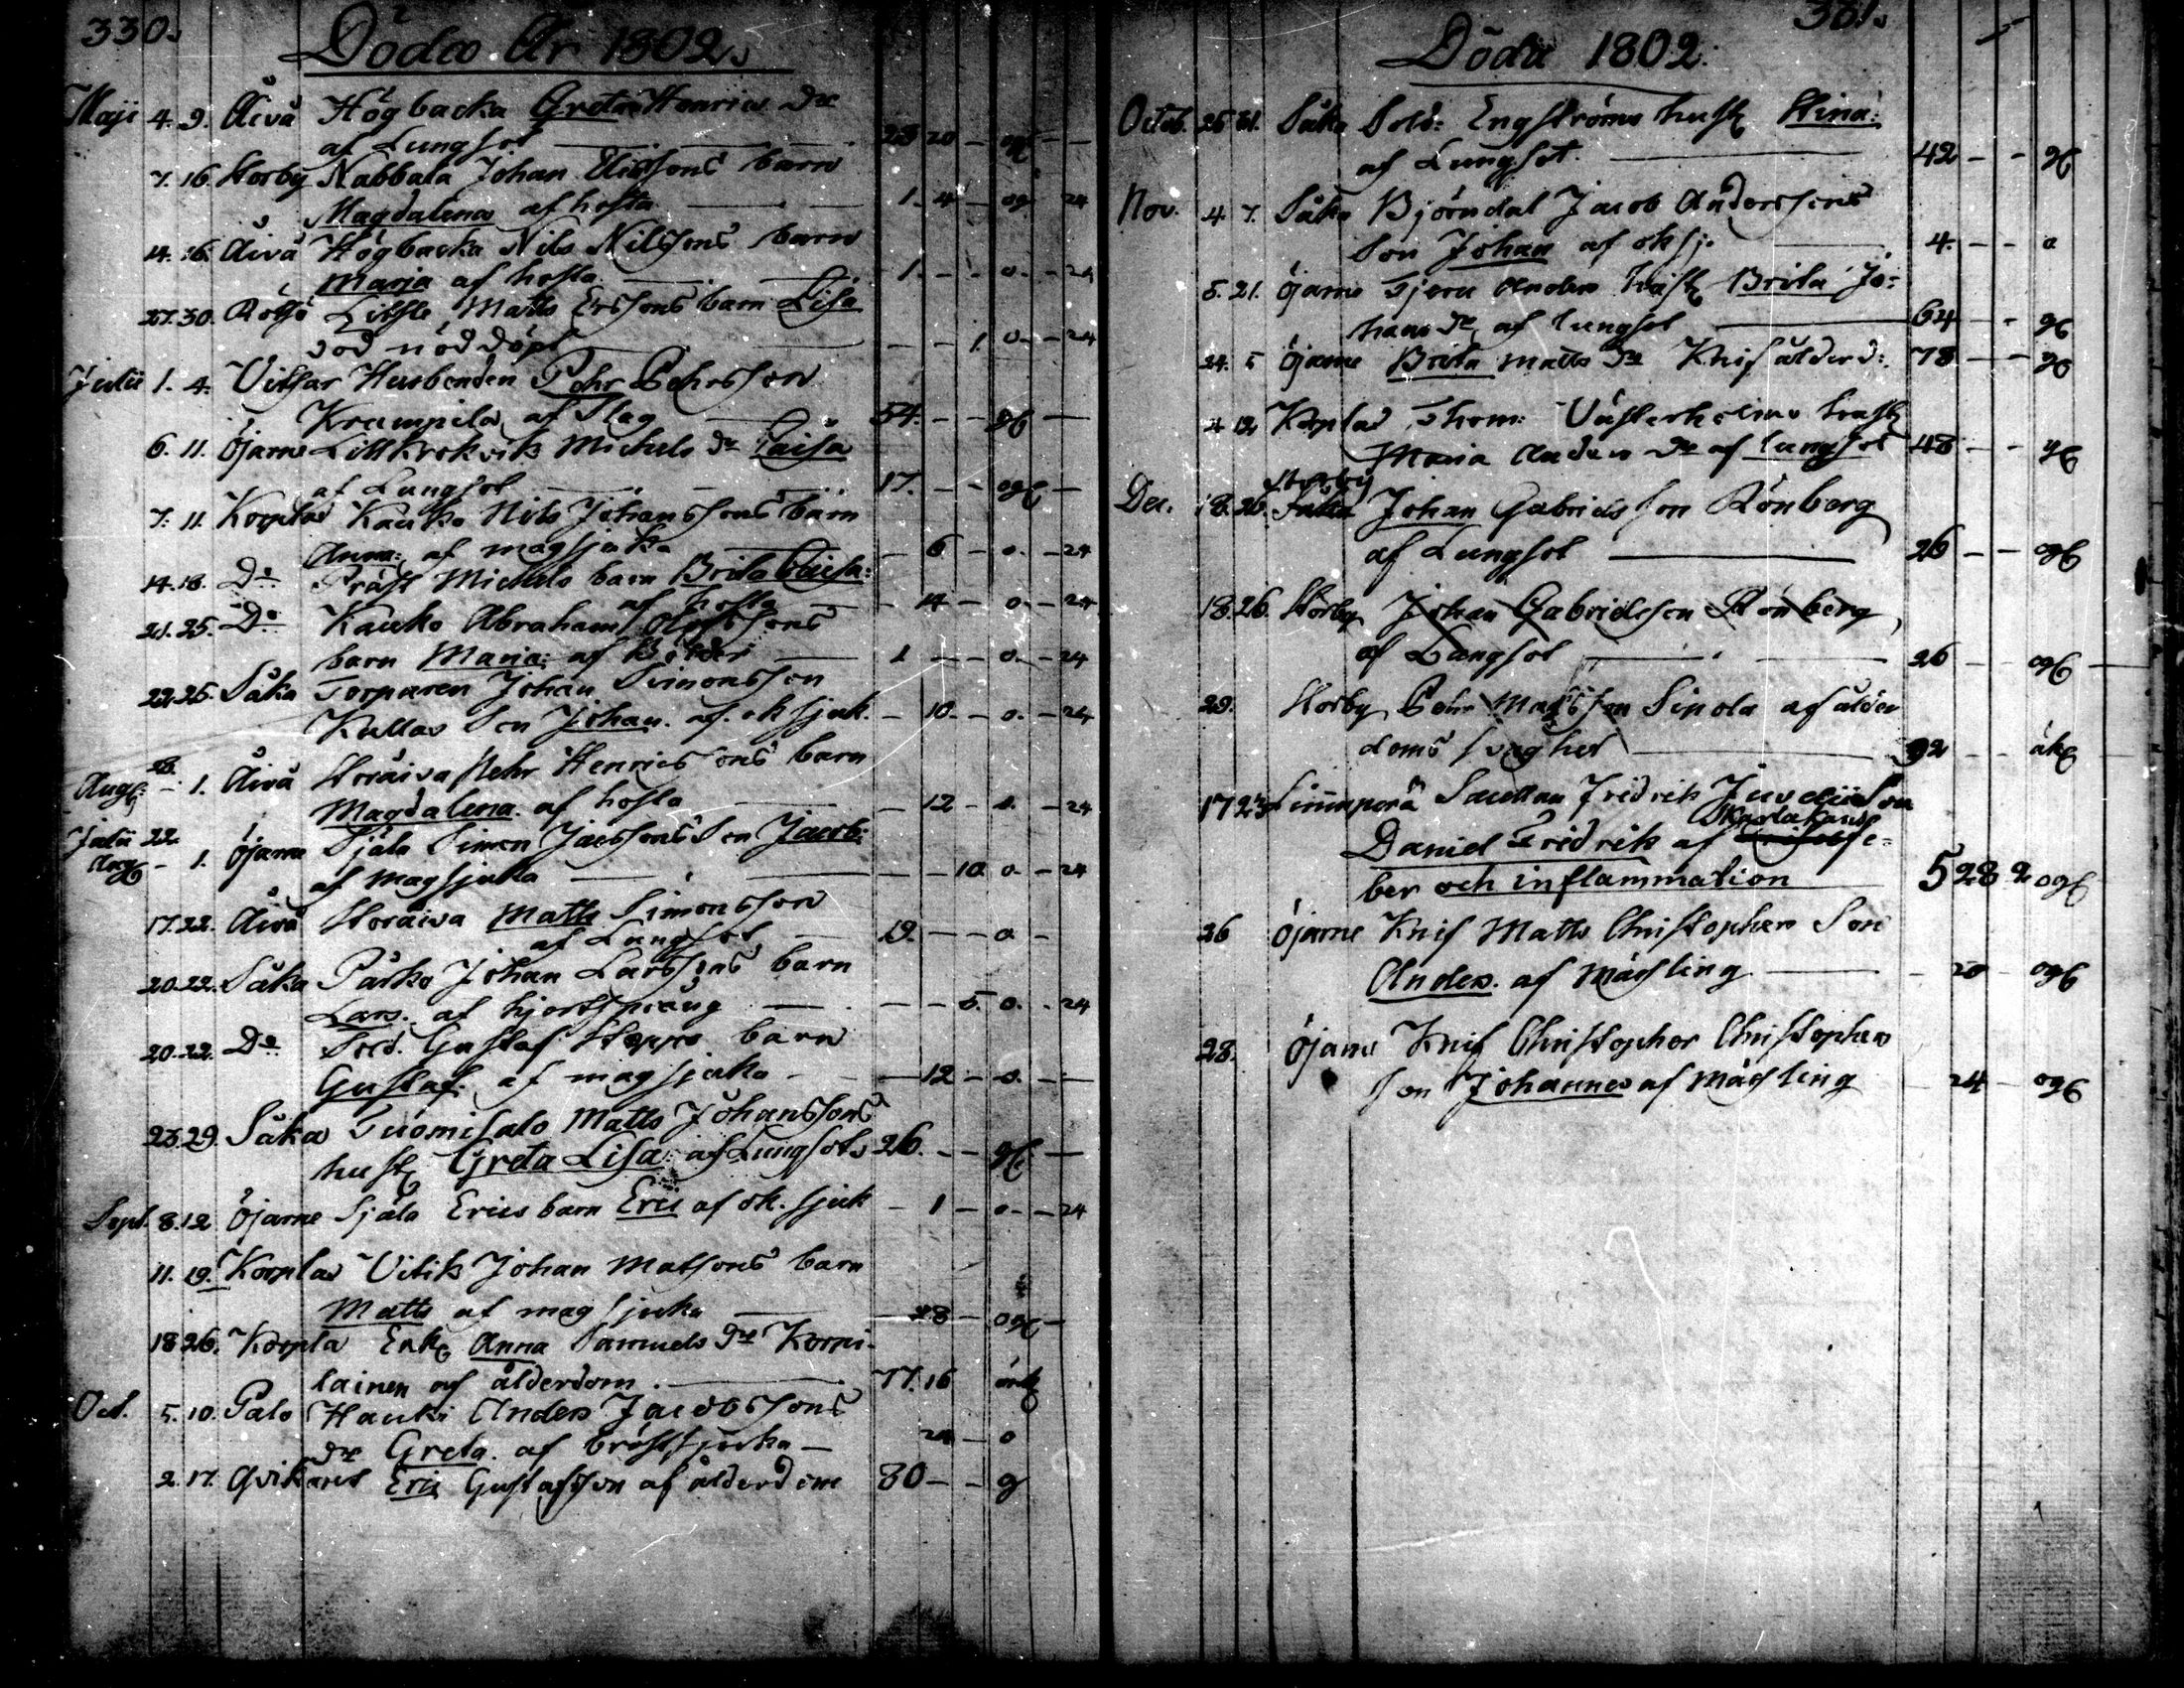 330.
Döda År 1802.
Maji 4. 9. Åivå Högbacka Greta Henrics dr
af Lungsot 23 20 - og -
7. 16. Storby Nabbala Johan Ericssons barn
Magdalena af hosta 1. 4 - og 24
14. 16. Åivå Högbacka Nils Nilssons barn
Maria af hosta 1. - - o. - 24
27. 30. Lillsle Matts Erssons barn Lisa
död nöddöpt - - 1 o. - 24
Julii 1. 4. Vitsar Husbonden Pehr Pehrsson
Krumpila af Slag 54. - - gf -
6. 11. Öjarne Lillkrokvik Michels dr Caisa
af Lungsot 17. - - ogf -
7. 11. Korplax Kauko Nils Johanssons barn
Anna: af magsjuka - 6 - o. - 24
14. 18. Do Präst Michels barn Brita Caisa:
af hosta - 14 - o. - 24
21. 25. Do Kauko Abraham
barn Maria: af 1 - - o. - 24
22. 25. Såka Torparen Johan Simonsson
Kullas Son Johan. af. ok sjuk. - 10. - o. - 24
28.
Aug. - 1. Åivå Storåiva Pehr Henricssons barn
Magdalena. af hosta - 12 - o. - 24
Julii 22.
Aug - 1. Öjarne Själa Simon Jacssons Son Jacob:
af magsjuka - - 10 o. - 24
17. 22. Åivå Storåiva Matts Simonsson
af Lungsot 19. - - o -
20. 22. Såka Påsko Johan Larssons barn
Lars. af hjertsprång - - 5. o. - 24
20. 22. Do Sold. Gustaf barn
Gustaf. af magsjuka - 12 - o. - -
23. 29. Såka Tuomisalo Matts Johanssons
hust Greta Lisa af Lungsot. 26. - - gf. -
Sept. 8. 12 Öjarne Själa Erics barn Eric af ok. sjuk - 1 - o. - 24
11. 19. Korplax Vitik Johan Matsons barn
Matts af magsjuka 28 - ogf -
18 26. Korpla Enk Anna Samuels dr Korpi-
lainen af ålderdom. 77. 16
Oct. 5. 10. Palo Hauki Anders Jacobssons
dr Greta. af bröstsjuka - 24 - o
2. 17. Eric Gustafsson af ålderdom 80 - - g
331.
Döda 1802.
Octob. 25 31. Såka Sold: Engströms hust Stina:
af Lungsot. 42 - - gf
Nov. 4 7. Såka Björndal Jacob Anderssons
Son Johan af ok sj. 4. - - o
5. 21. Öjarne Tjeru Anders hust Brita Jo-
hans dr af lungsot 64 - - gf
24. 5 Öjarne Brita Matts dr Knif ålderd: 78 - - gf
4 12 Korplax Thom: Västerholms hust
Maria Anders dr af lungsot 48 - - gf
Storby
Dec. 18. 26. Såka Johan Gabrielsson Rönberg
af Lungsot 26 - - ogf
18. 26. Storby Johan Gabrielsson Rönberg
af Lungsot 26 - - ogf
29. Storby Pehr Matsson Sipola af ålder
doms svaghet 92 - - äkf
17 23 Fridrik Son
Skarlakans
Daniel Fridrik af fe-
ber och inflammation 5 28 2 ogf
26 Öjarne Knif Matts Christophers Son
Anders. af Mässling - 20 - ogf
28. Öjarne Knif Christopher Christophers
son Johannes af Mässling - 24 - ogf